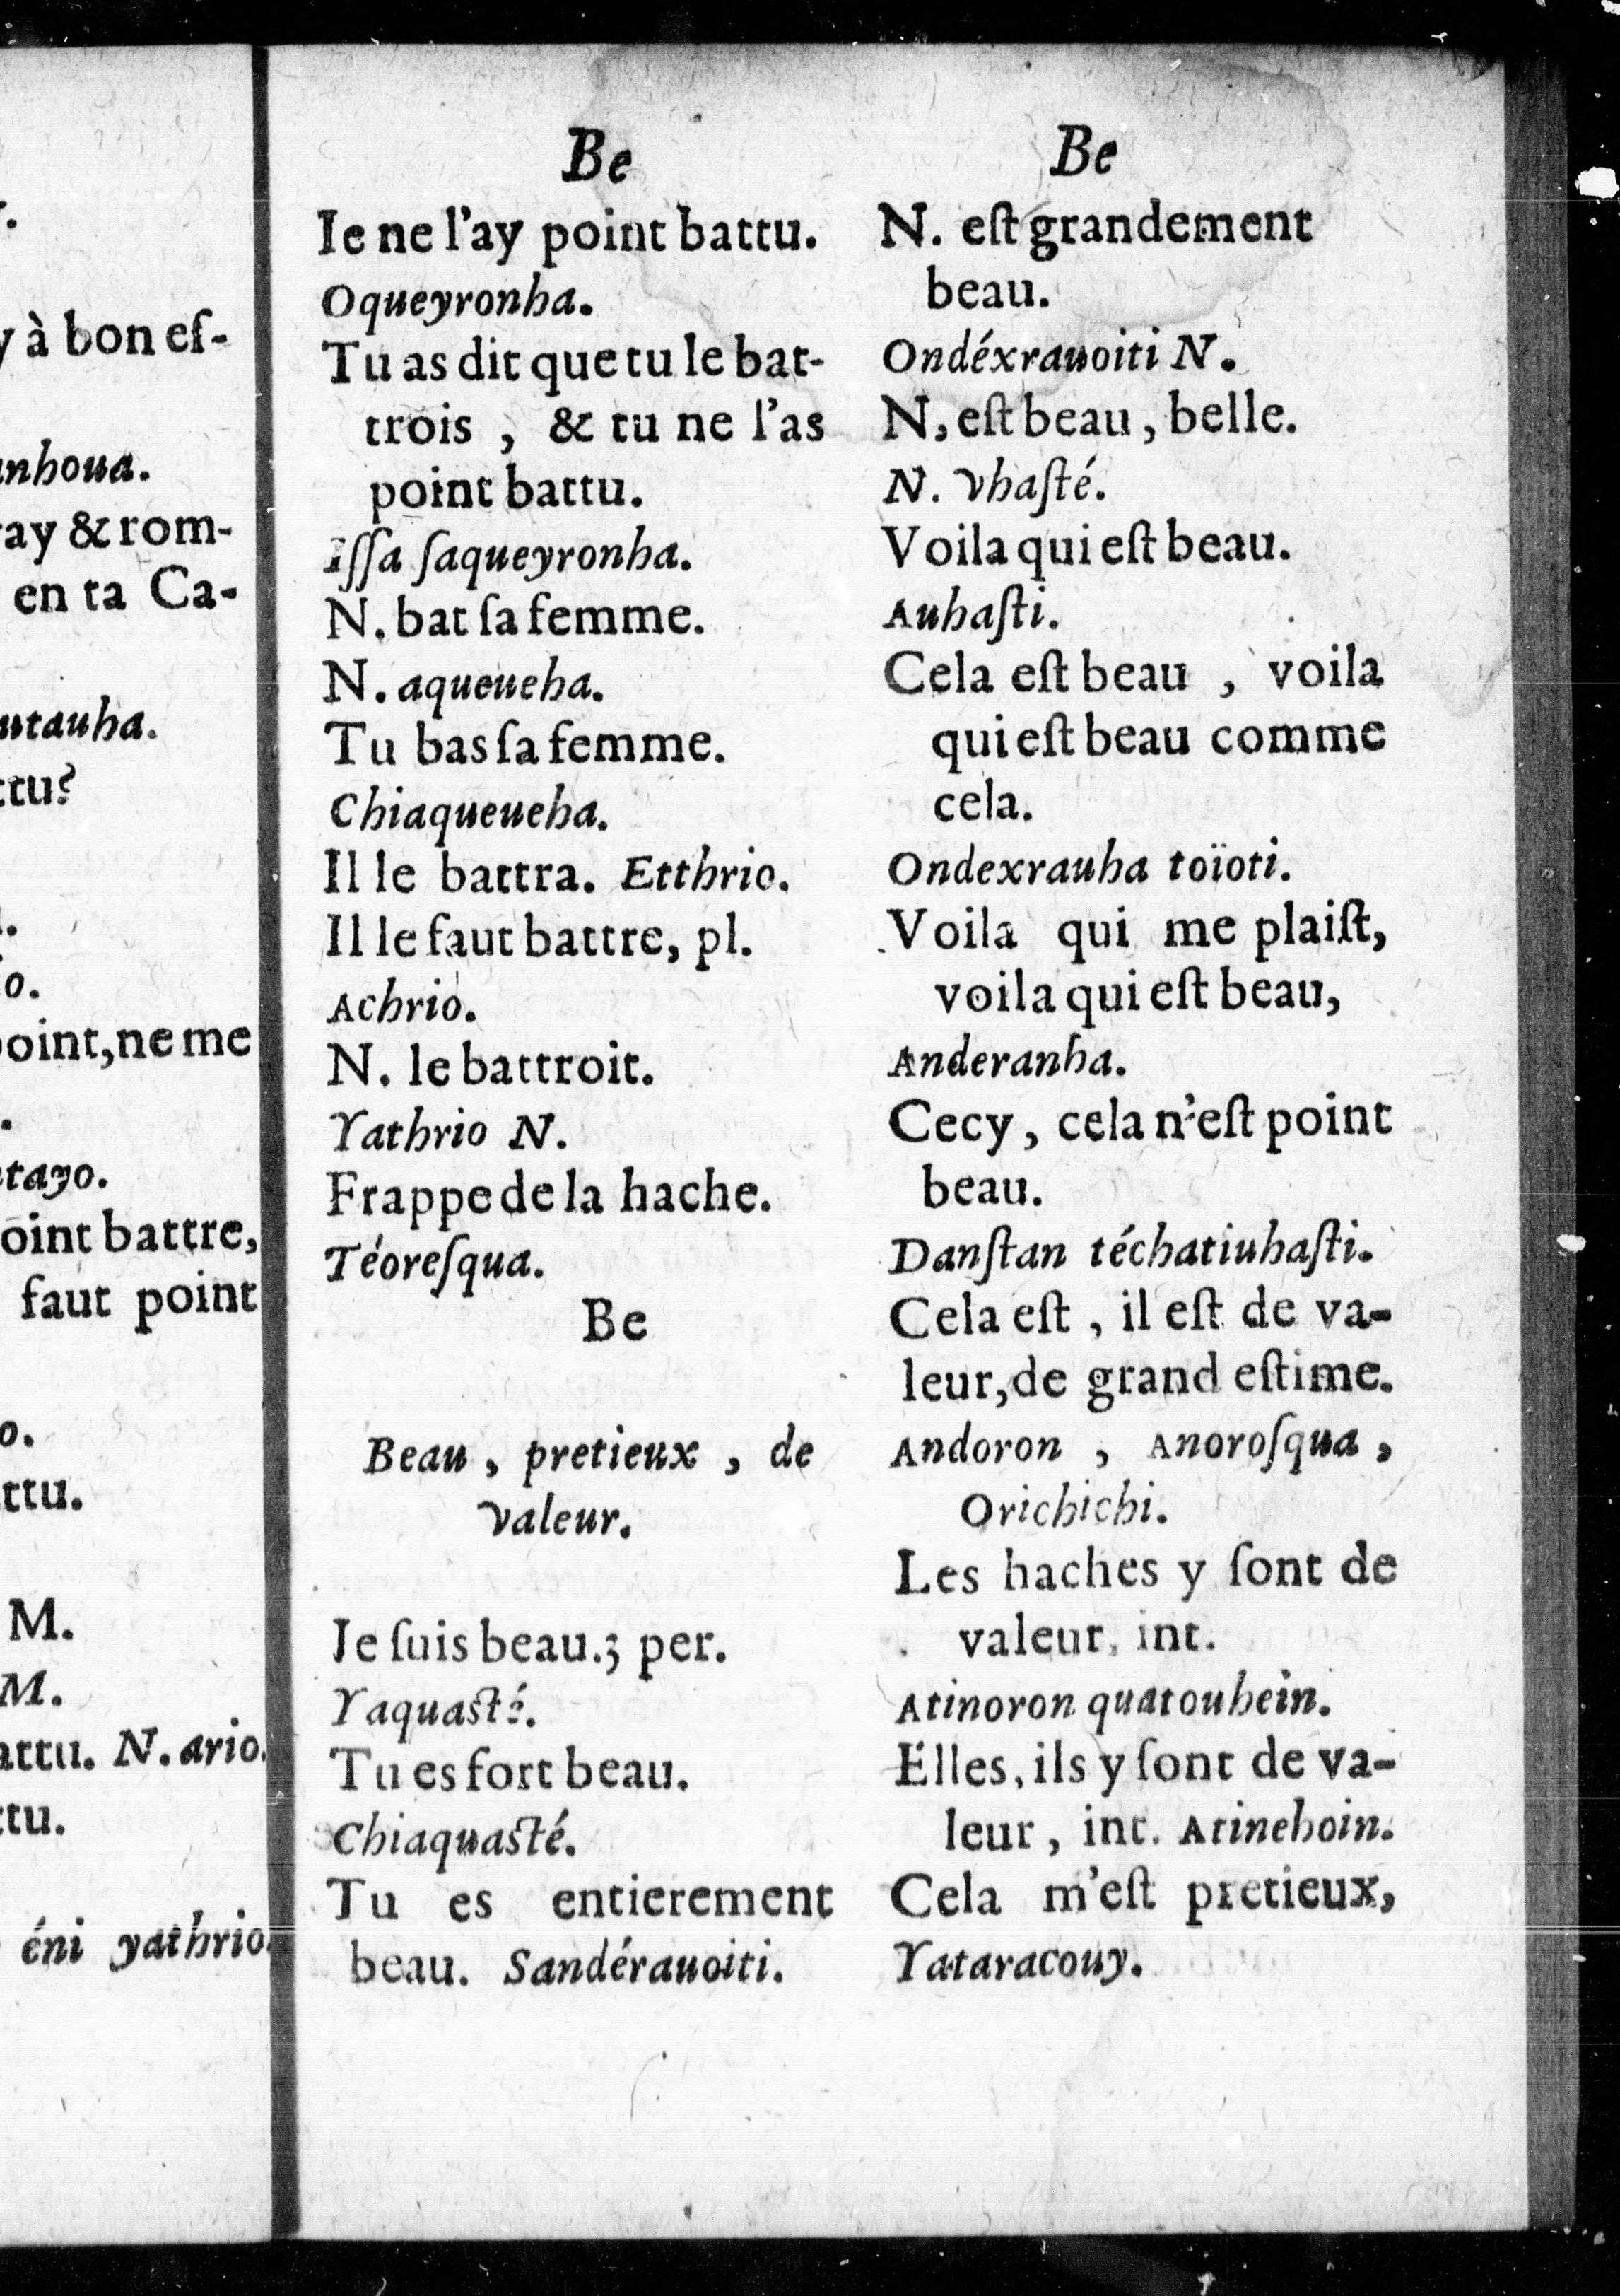 r.
y à bon eſ-
anhoua.
ray & rom-
en ta Ca-
utauha.
ttu?
o.
point, ne me
tayo.
oint battre,
faut point
o.
ttu.
M.
M.
attu. N. ario.
ttu.
éni yathrio.
Be
Ie ne l'ay point battu.
Oqueyronha.
Tu as dit que tu le bat-
trois , & tu ne l'as
point battu.
Iſſa ſaqueyronha.
N. bat ſa femme.
N. aqueueha.
Tu bas ſa femme.
Chiaqueueha.
Il le battra. Etthrio.
Il le faut battre, pl.
Achrio.
N. le battroit.
Yathrio N.
Frappe de la hache.
Téoreſqua.
Be
Beau , pretieux , de
valeur.
Je ſuis beau.; per.
Yaquaſté.
Tu es fort beau.
Chiaquaſté.
Tu es entierement
beau. Sandérauoiti.
Be
N. eſt grandement
beau.
Ondéxrauoiti N.
N, eſt beau , belle.
N. vhaſté.
Voila qui eſt beau.
Auhaſti.
Cela eſt beau , voila
qui eſt beau comme
cela.
Ondexrauha toïoti.
Voila qui me plaiſt,
voila qui eſt beau,
Anderanha.
Cecy , cela n'eſt point
beau.
Danſtan téchatiuhaſti.
Cela eſt , il eſt de va-
leur, de grand eſtime.
Andoron , Anoroſqua ,
Orichichi.
Les haches y ſont de
valeur, int.
Atinoron quatouhein.
Elles, ils y ſont de va-
leur , int. Atinehoin.
Cela m'eſt pretieux,
Yataracouy.